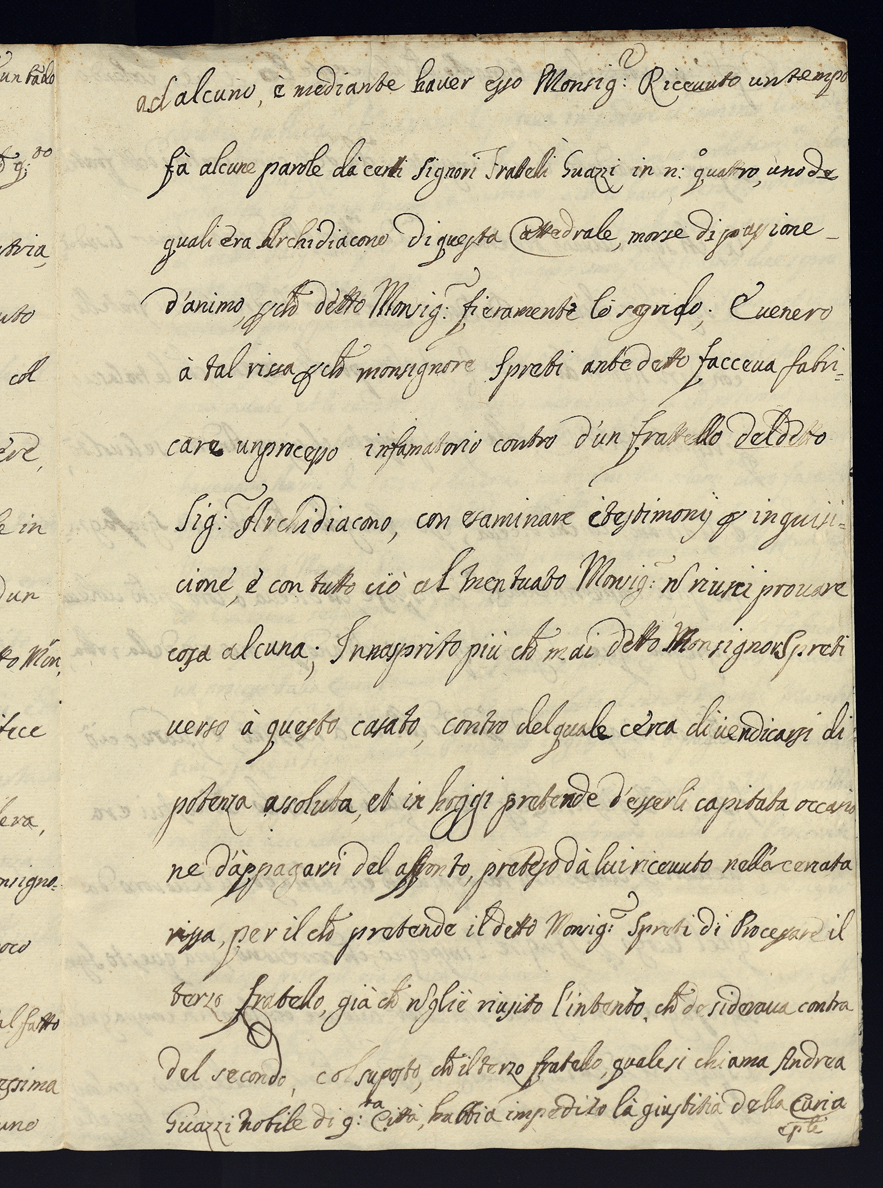 ad alcuno, è mediante haver esso Monsig.r Ricevuto un tempo
fà alcune parole dà certi Signori Fratelli Guazzi in n: quattro, uno de
quali era Archidiacono di questa Cattedrale, morse di passione
d'animo, p che detto Monsig.r fieramente lo sgrido; È venero
à tal rissa p che monsignore Spreti antedetto facceva fabri=
care un processo infamatorio contro d'un frattello del detto
Sig.r Archidiacono, con esaminare è testimonij p inquisi=
cione, è con tutto ciò al mentuato Monsig.r n riusci provare
cosa alcuna; Innasprito più che mai detto Monsignor Spreti
verso à questo casato, contro del quale cerca di vendicarsi di
potenza assoluta, et in hoggi pretende d'esserli capitata occasio
ne d'appagarsi del affronto, preteso dà lui ricevuto nella cennata
rissa, per il che pretende il detto Monsig.r Spreti di Processare il
terzo fratello, già che n gliè riusito l'intento, che desiderava contra
del secondo, col suposto, che il terzo fratello, quale si chiama Andrea
Guazzi Nobile di q:ta Città, habbia impedito là giustitia della Curia
untado
q:do
uto
col
le in
dun
tto Mon,
fece
era,
nsigno
oco
al fatto
essima
uno